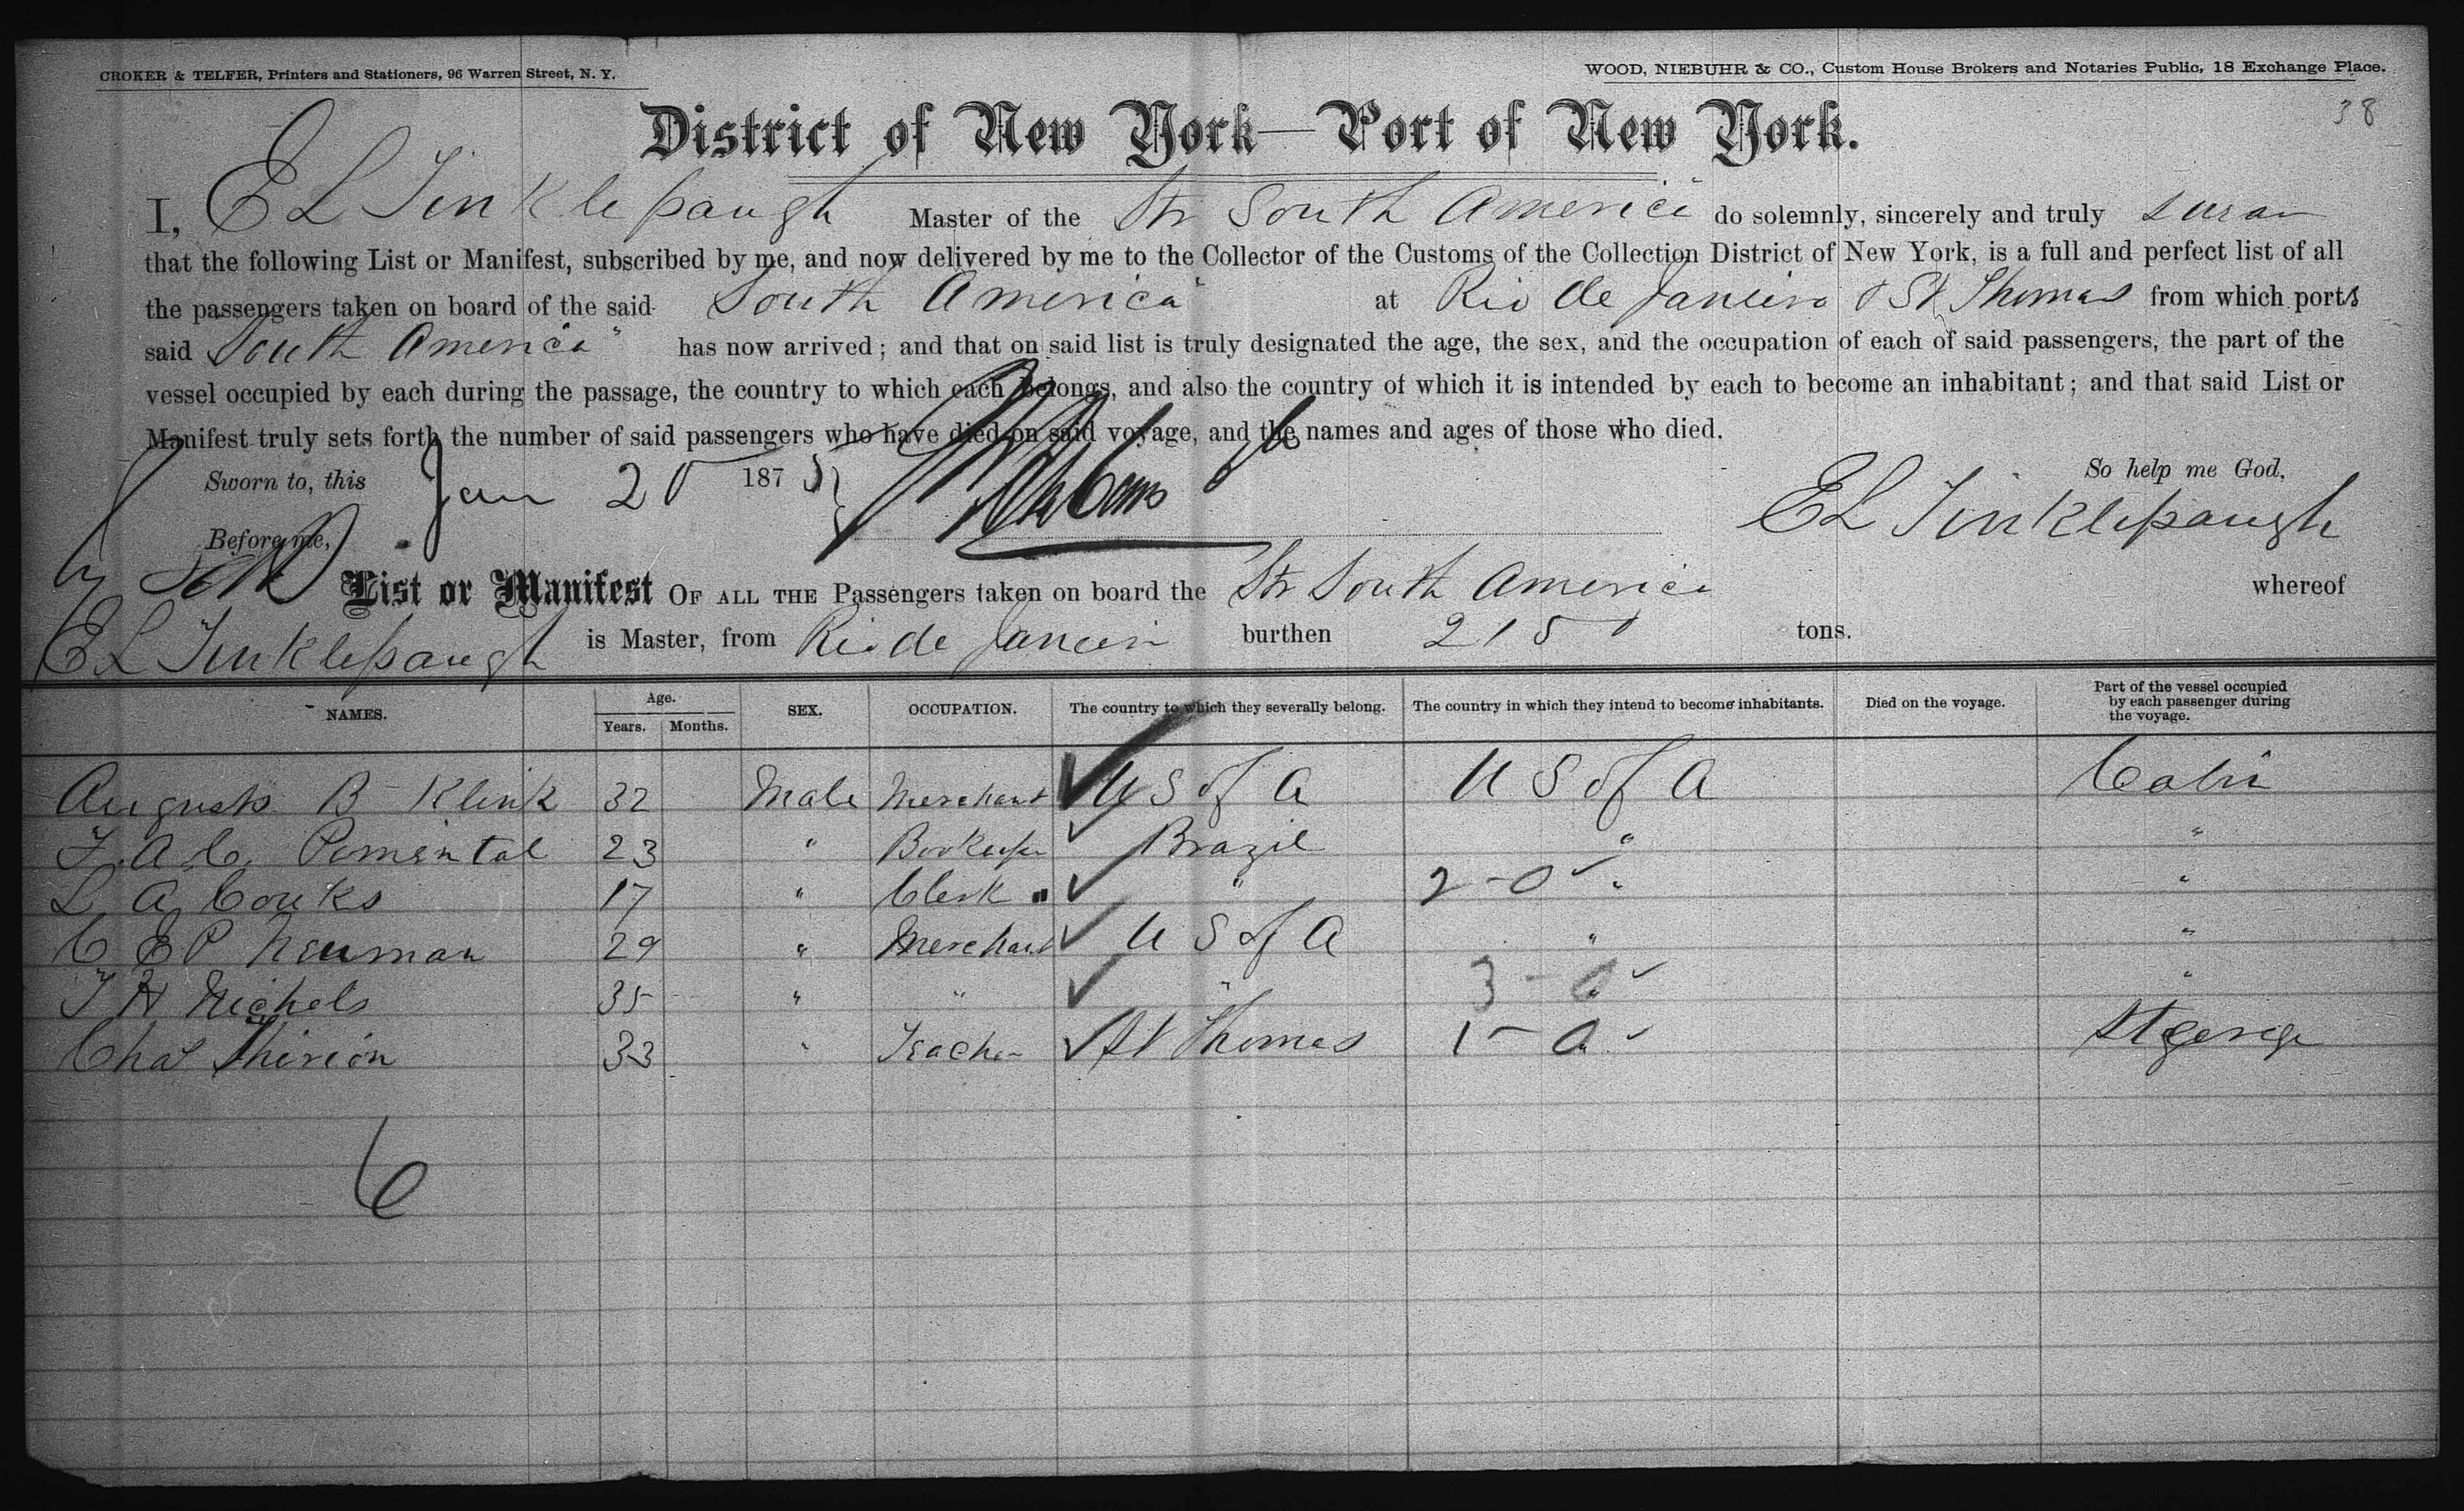 CROKER & TELFER, Printers and Stationers, 96 Warren Street, N. Y.
WOOD, NIEBUHR & CO., Custom House Brokers and Notaries Public, 18 Exchange Place.
38
District of New York—Port of New York.
I, E L Tinklepaugh Master of the Str South America do solemnly, sincerely and truly swear
that the following List or Manifest, subscribed by me, and now delivered by me to the Collector of the Customs of the Collection District of New York, is a full and perfect list of all
the passengers taken on board of the said South America" at Rio de Janeiro & St Thomas from which ports
said South America" has now arrived; and that on said list is truly designated the age, the sex, and the occupation of each of said passengers, the part of the
vessel occupied by each during the passage, the country to which each belongs, and also the country of which it is intended by each to become an inhabitant; and that said List or
Manifest truly sets forth the number of said passengers who have died on said voyage, and the names and ages of those who died.
Sworn to, this Jan 25 1875 So help me God,
Before me, E L Tinklepaugh
List or Manifest OF ALL THE Passengers taken on board the Str South America whereof
E L Tinklepaugh is Master, from Rio de Janeiro burthen 2150 tons.
NAMES. Age. Years. Months. SEX. OCCUPATION. The country to which they severally belong. The country in which they intend to become inhabitants. Died on the voyage. Part of the vessel occupied by each passenger during the voyage.
B Klink 32 Male Merchant U S of A U S of A Cabin
Pimental 23 " Bookeeper Brazil " "
L A Couks 17 " Clerk " " 2-0 " "
C E P Neuman 29 " Merchant U S of A " "
T H Nichols 35 " " " 3-0 " "
Chas Thirion 33 " Teacher St Thomas 1-0 " Steerage
6